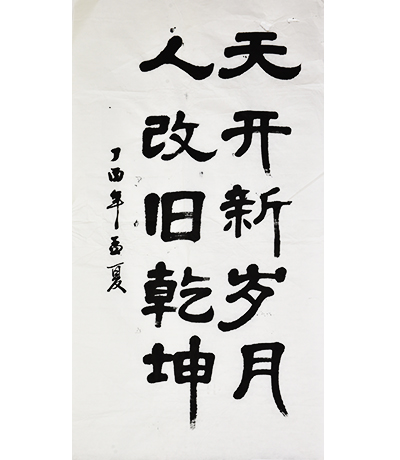 天开新岁月
人改旧乾坤
丁酉年孟夏